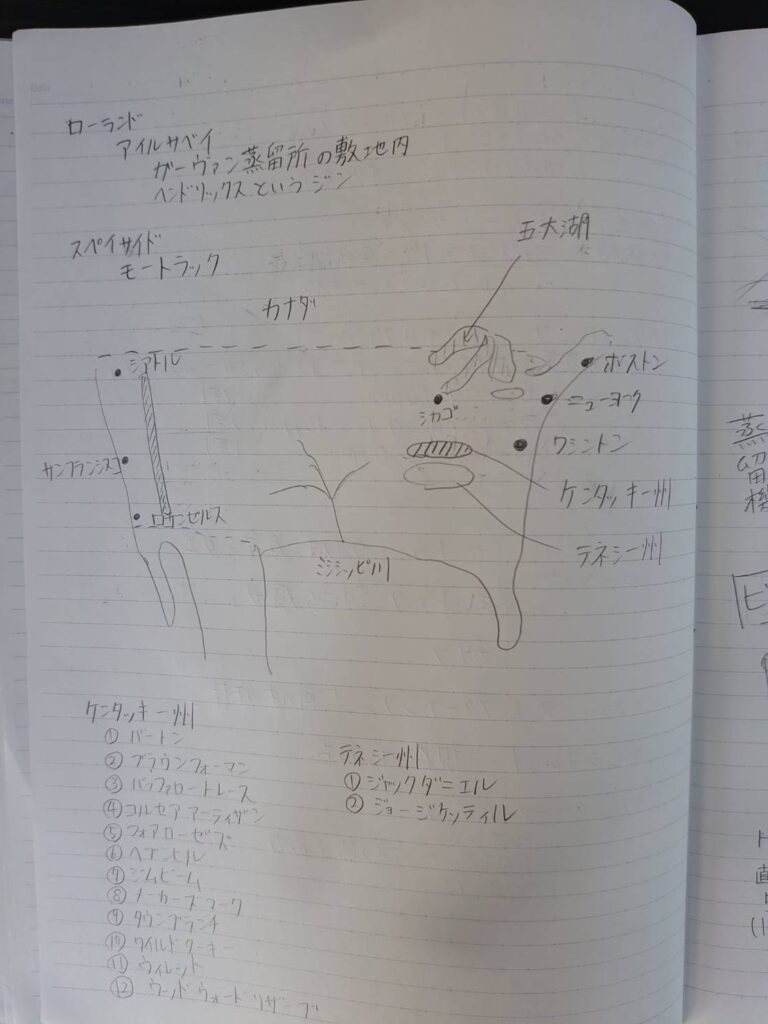 ローランド
アイルサベイ
ガーヴァン蒸留所の敷地内
ヘンドリックスというジン
スペイサイド
モートラック
五大湖
カナダ
シアトル
ボストン
シカゴ
ニューヨーク
サンフランシスコ
ワシントン
ケンタッキー州
ロサンゼルス
テネシー州
ミシシッピ川
ケンタッキー州
① バートン
② ブラウンフォーマン
③ バッファロートレース
④ コルセアアーティザン
⑤ フォアローゼズ
⑥ ヘブンヒル
⑦ ジムビーム
⑧ メーカーズマーク
⑨ タウンブランチ
⑩ ワイルドターキー
⑪ ウィレット
⑫ ウッドウォードリザーブ
テネシー州
① ジャックダニエル
② ジョージディッケル
蒸
留
機